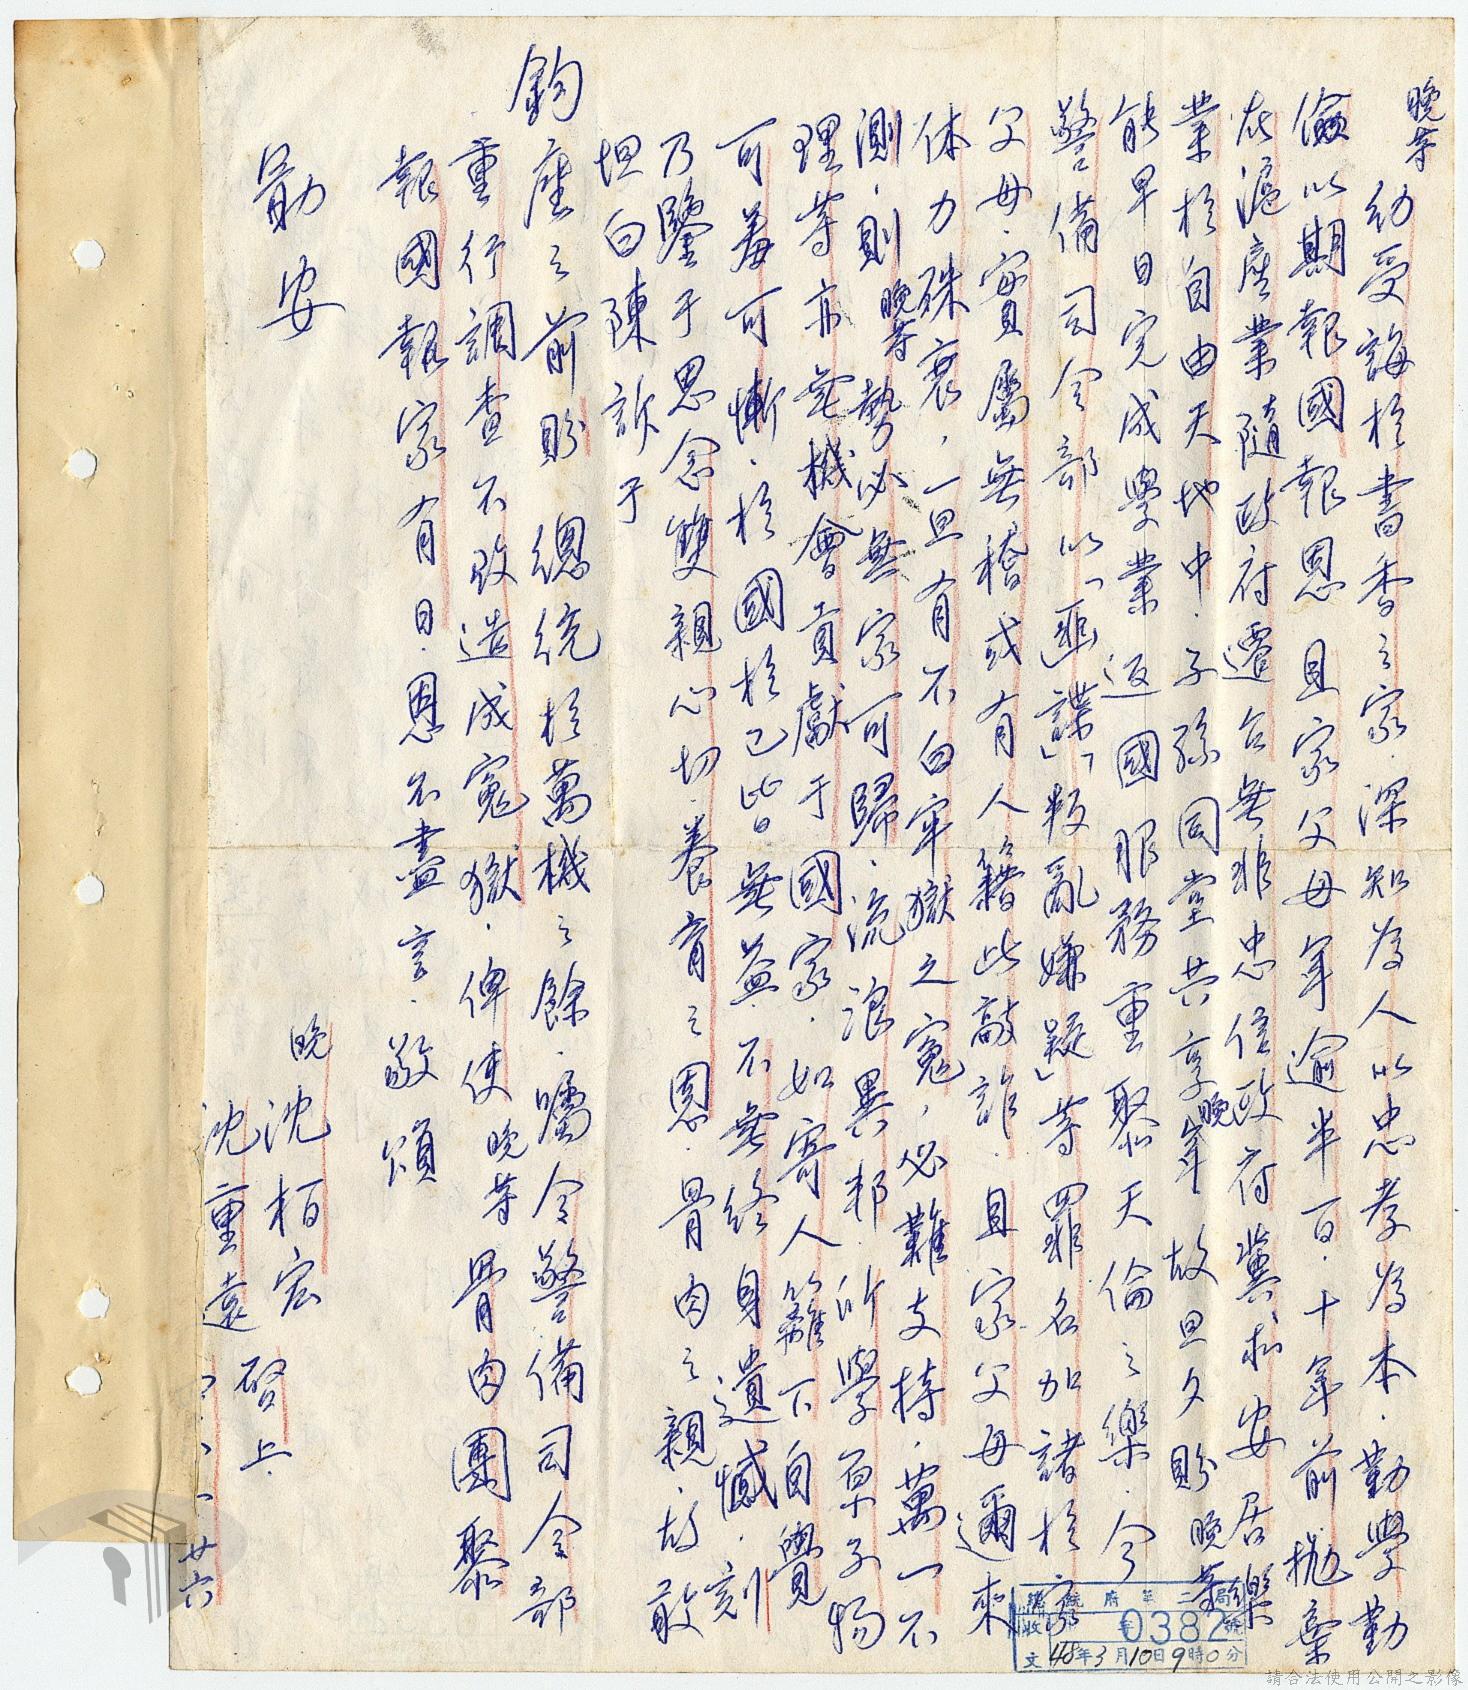 晚等幼受誨於書香之家．深知為人以忠孝為本．勤學勤
儉以期報國報恩且家父母年逾半百．十年前拋棄
在滬產業隨政府遷台無非忠信政府冀求安居樂
業於自由天地中．子孫同堂共享晚年故旦夕盼晚等
能早日完成學業返國服務重聚天倫之樂．今
警備司令部以「匪諜」「叛亂嫌疑」等罪名加諸於家
父母．實屬無稽或有人藉此敲詐．且家父母邇來
体力殊衰，一旦有不白牢獄之冤，必難支持．萬一不
測．則晚等勢必無家可歸．流浪異邦．所學原子物
理等亦無機會貢獻于國家．如寄人籬下自覺
可羞可慚．於國於己皆無益．不無終身遺憾．刻
乃鑒于思念雙親心切．養育之恩．骨肉之親．故敢
坦白陳訴于
鈞座之前盼 總統於萬機之餘．囑令警備司令部
重行調查不致造成冤獄．俾使晚等骨肉團聚
報國報家有日．恩不盡言．敬頌
勛安
晚沈栢宏
沈重遠 啓上．
二．廿六
總統府第二局
收文 字 0382 號
48年3月10日9時0分
請合法使用公開之影像